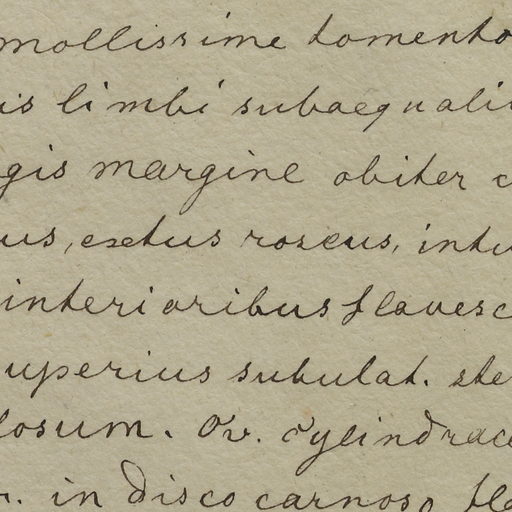 mollissime tomento
is limbi subaequali
gis margine obiter c
us, extus roseus, intu
interioribus flavesc
uperius subulat. ste
losum. Ov. Cylindrace
r. in disco carnoso fl